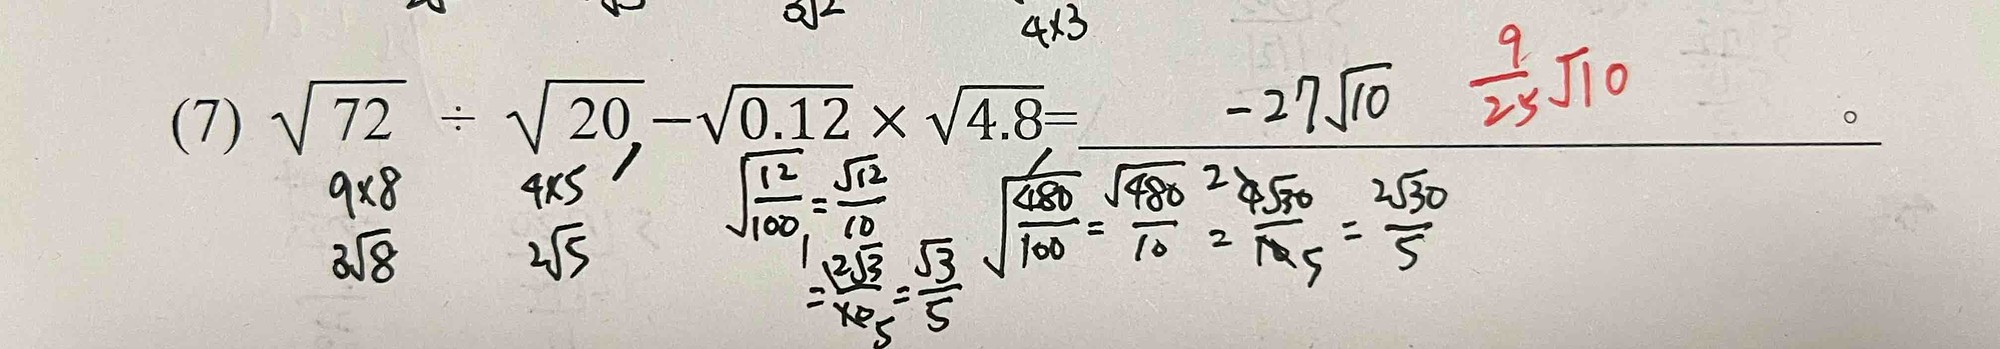 4×3
(7) √72 ÷ √20 −√0.12 × √4.8= -27√10 。
9/25 √10
9×8 4×5 √(12/100) = √12/10 √(480/100) = √480/10 = 4√30/10 = 2√30/5
3√8 2√5 = 2√3/10 = √3/5